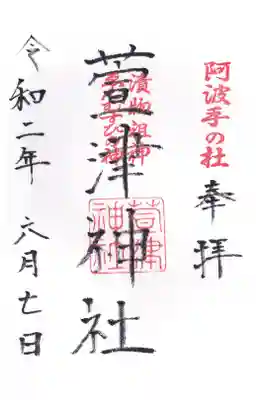 阿波手の杜
奉拝
漬物祖神
萱津神社
萱津神社
令和二年 六月七日